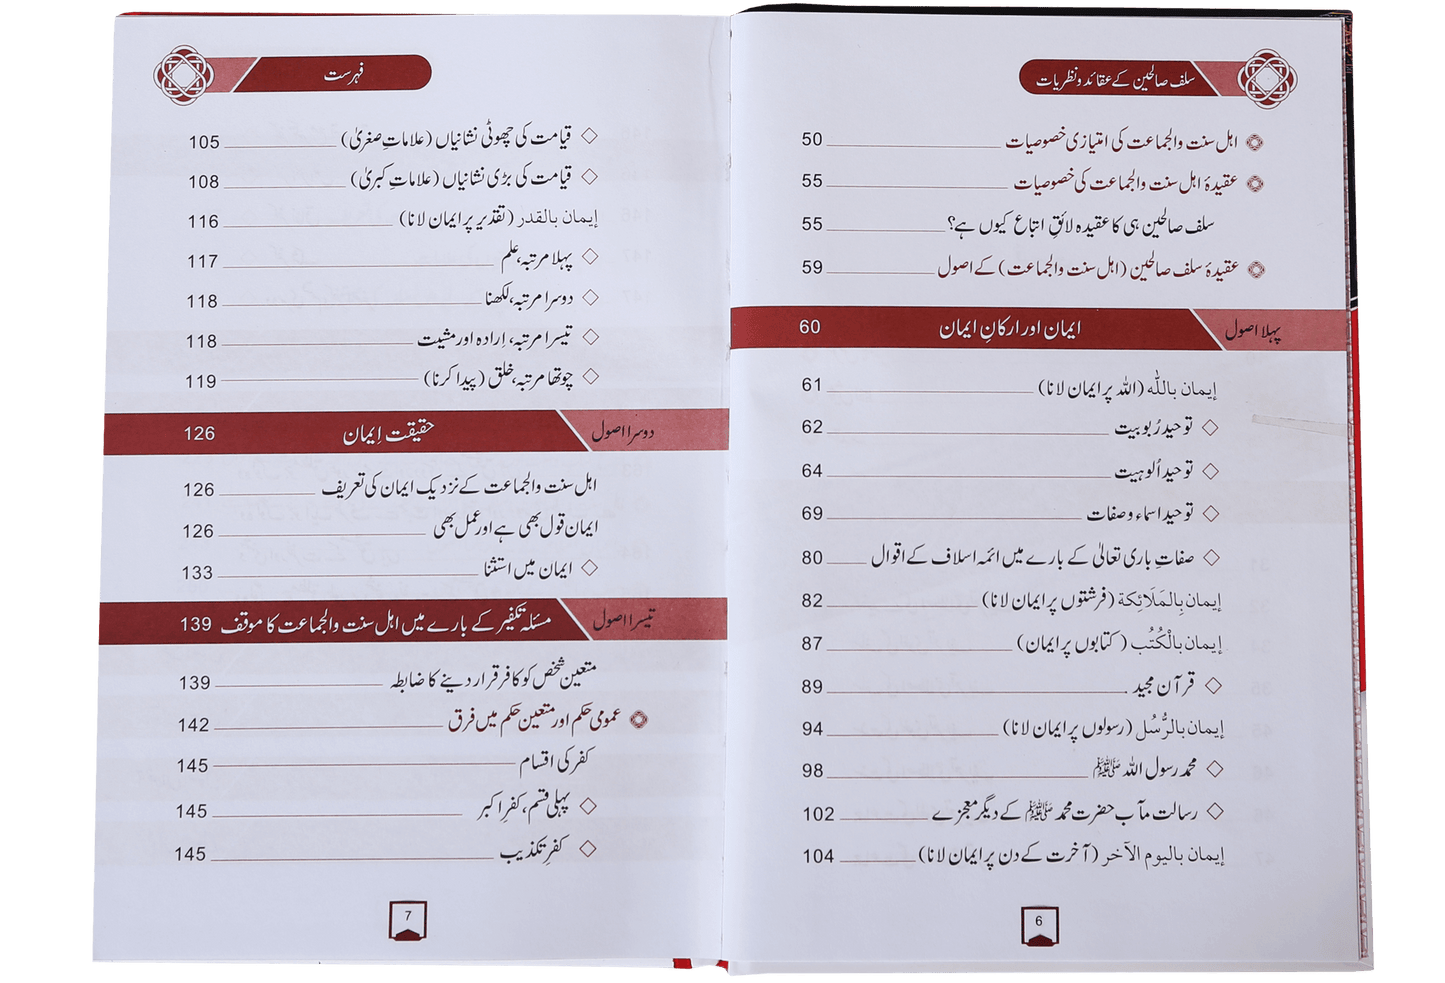 سلف صالحین کے عقائد و نظریات
اہل سنت والجماعت کی امتیازی خصوصیات 50
عقیدۂ اہل سنت والجماعت کی خصوصیات 55
سلف صالحین ہی کا عقیدہ لائقِ اتباع کیوں ہے؟ 55
عقیدۂ سلف صالحین (اہل سنت والجماعت) کے اصول 59
پہلا اصول ایمان اور ارکانِ ایمان 60
إیمان باللّٰہ (اللہ پر ایمان لانا) 61
توحید رُبوبیت 62
توحید اُلوہیت 64
توحید اسماء و صفات 69
صفاتِ باری تعالیٰ کے بارے میں ائمہ اسلاف کے اقوال 80
إیمان بِالمَلَائِکة (فرشتوں پر ایمان لانا) 82
إیمان بالْکُتُب (کتابوں پر ایمان) 87
قرآن مجید 89
إیمان بالرُّسُل (رسولوں پر ایمان لانا) 94
محمد رسول اللہ ﷺ 98
رسالت مآب حضرت محمد ﷺ کے دیگر معجزے 102
إیمان بالیوم الآخر (آخرت کے دن پر ایمان لانا) 104
6
فہرست
قیامت کی چھوٹی نشانیاں (علاماتِ صغریٰ) 105
قیامت کی بڑی نشانیاں (علاماتِ کبریٰ) 108
إیمان بالقدر (تقدیر پر ایمان لانا) 116
پہلا مرتبہ، علم 117
دوسرا مرتبہ، لکھنا 118
تیسرا مرتبہ، اِرادہ اور مشیت 118
چوتھا مرتبہ، خلق (پیدا کرنا) 119
دوسرا اصول حقیقت اِیمان 126
اہل سنت والجماعت کے نزدیک ایمان کی تعریف 126
ایمان قول بھی ہے اور عمل بھی 126
ایمان میں استثنا 133
تیسرا اصول مسئلہ تکفیر کے بارے میں اہل سنت والجماعت کا موقف 139
متعین شخص کو کافر قرار دینے کا ضابطہ 139
عمومی حکم اور متعین حکم میں فرق 142
کفر کی اقسام 145
پہلی قسم، کفرِ اکبر 145
کفرِ تکذیب 145
7